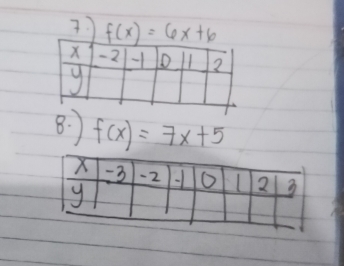 7.) f(x) = 6x+6
x -2 -1 0 1 2
y
8.) f(x) = 7x+5
x -3 -2 -1 0 1 2 3
y